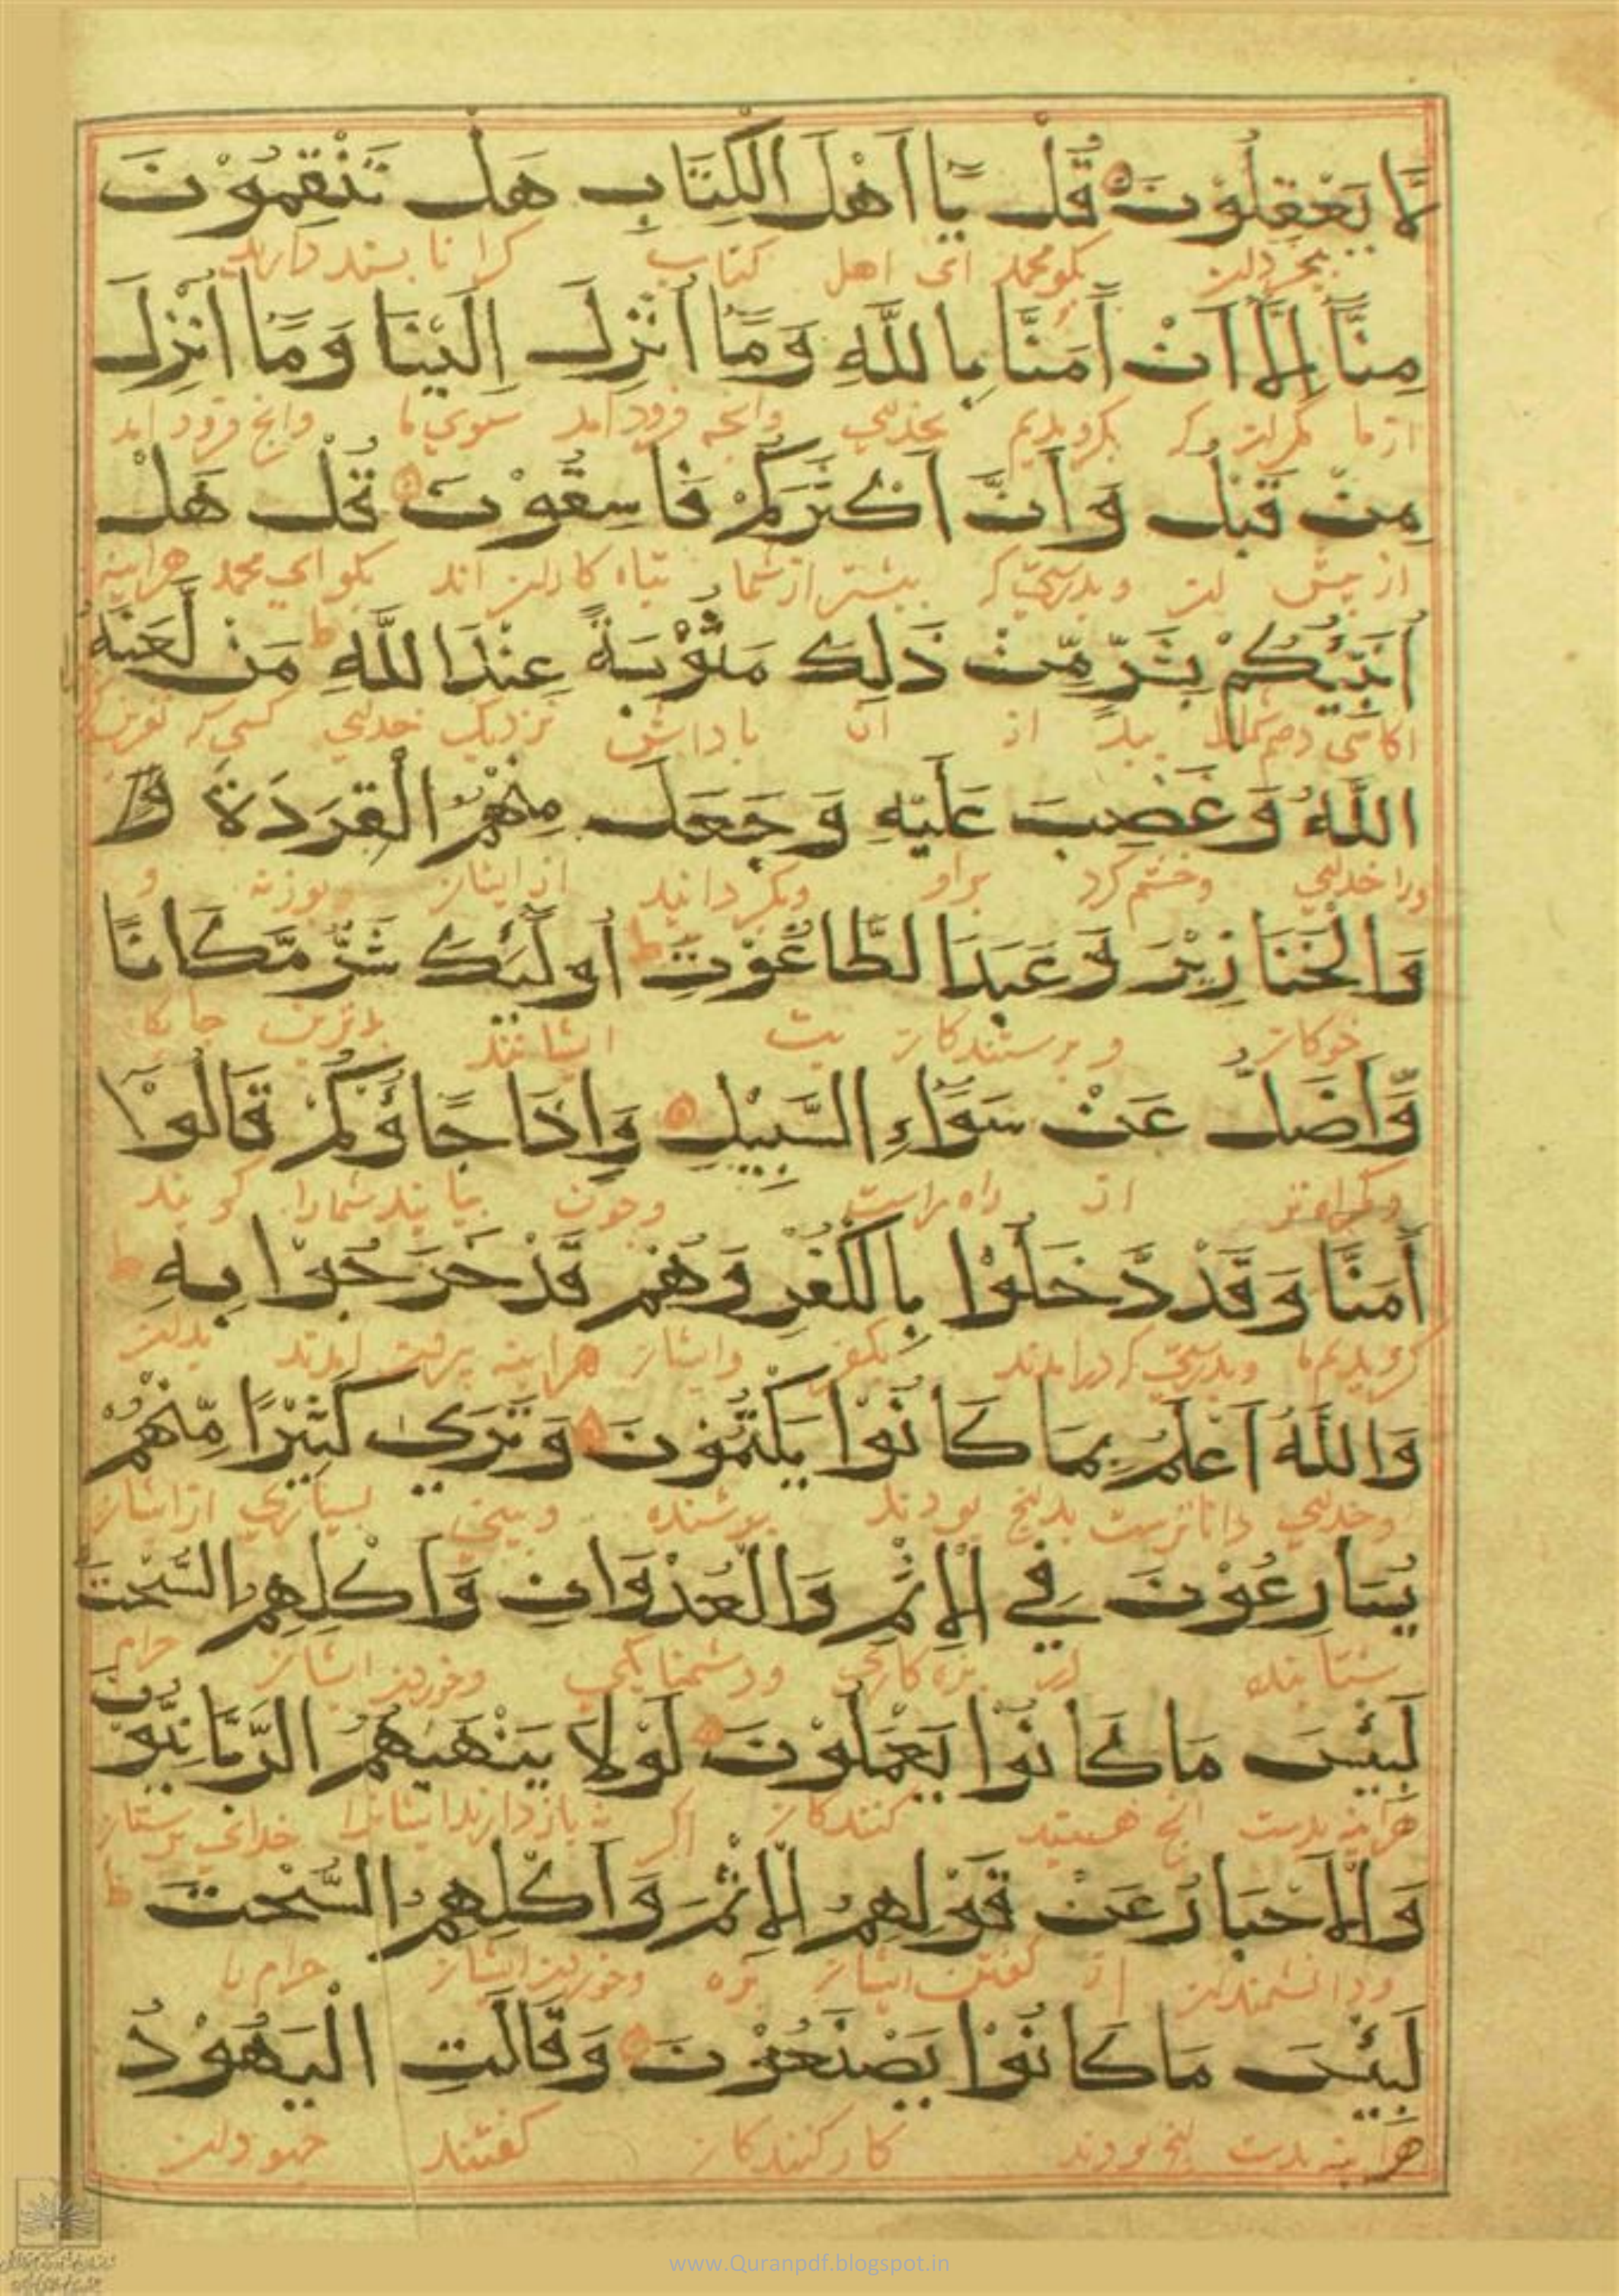 لَّا يَعْقِلُوْنَ قُلْ يَا اَهْلَ الْكِتَابِ هَلْ تَنْقِمُوْنَ
بگو محمد ای اهل کتاب
مِنَّا اِلَّا اَنْ اٰمَنَّا بِاللّٰهِ وَمَا اُنْزِلَ اِلَيْنَا وَمَا اُنْزِلَ
از ما که بکرویدیم بخدای وانچه فرود آمد سوی ما وانچ فرود آمد
مِنْ قَبْلُ وَاَنَّ اَكْثَرَكُمْ فَاسِقُوْنَ قُلْ هَلْ
از پیش وبدرستی که بیشتر از شما تباه کاران اند بگو ای محمد هراینه
اُنَبِّئُكُمْ بِشَرٍّ مِّنْ ذَلِكَ مَثُوْبَةً عِنْدَ اللّٰهِ مَنْ لَّعَنَهُ
از آن پاداش نزدیک خدای
اللّٰهُ وَغَضِبَ عَلَيْهِ وَجَعَلَ مِنْهُمُ الْقِرَدَةَ وَ
ورا خدای وخشم کرد براو وبگردانید از ایشان بوزنه و
وَالْخَنَازِيْرَ وَعَبَدَ الطَّاغُوْتَ اُولٰٓئِكَ شَرٌّ مَّكَانًا
خوکان و پرستندکان بت ایشانند بدترین
وَّاَضَلُّ عَنْ سَوَآءِ السَّبِيْلِ وَاِذَا جَآؤُكُمْ قَالُوْا
از راه راست وچون بیایند شمارا گویند
اٰمَنَّا وَقَدْ دَّخَلُوْا بِالْكُفْرِ وَهُمْ قَدْ خَرَجُوْا بِهِ
کرویدیم ما وبدرستی که درامدند بکفر وایشان هراینه بدان
وَاللّٰهُ اَعْلَمُ بِمَا كَانُوْا يَكْتُمُوْنَ وَتَرَى كَثِيْرًا مِّنْهُمْ
وخدای داناترست بدانچ بودند وبینی بسیاری از ایشان
يُسَارِعُوْنَ فِي الْاِثْمِ وَالْعُدْوَانِ وَاَكْلِهِمُ السُّحْتَ
بزه کاری ودشمنایگی وخوردن ایشان حرام
لَبِئْسَ مَا كَانُوْا يَعْمَلُوْنَ لَوْلَا يَنْهٰهُمُ الرَّبَّانِيُّوْنَ
هراینه بدست انچ هستید کنندکان
وَالْاَحْبَارُ عَنْ قَوْلِهِمُ الْاِثْمَ وَاَكْلِهِمُ السُّحْتَ
ودانشمندان از گفتن ایشان بزه وخوردن ایشان حرام را
لَبِئْسَ مَا كَانُوْا يَصْنَعُوْنَ وَقَالَتِ الْيَهُوْدُ
هراینه بدست انچ بودند کارکنندکان گفتند جهودان
www.Quranpdf.blogspot.in